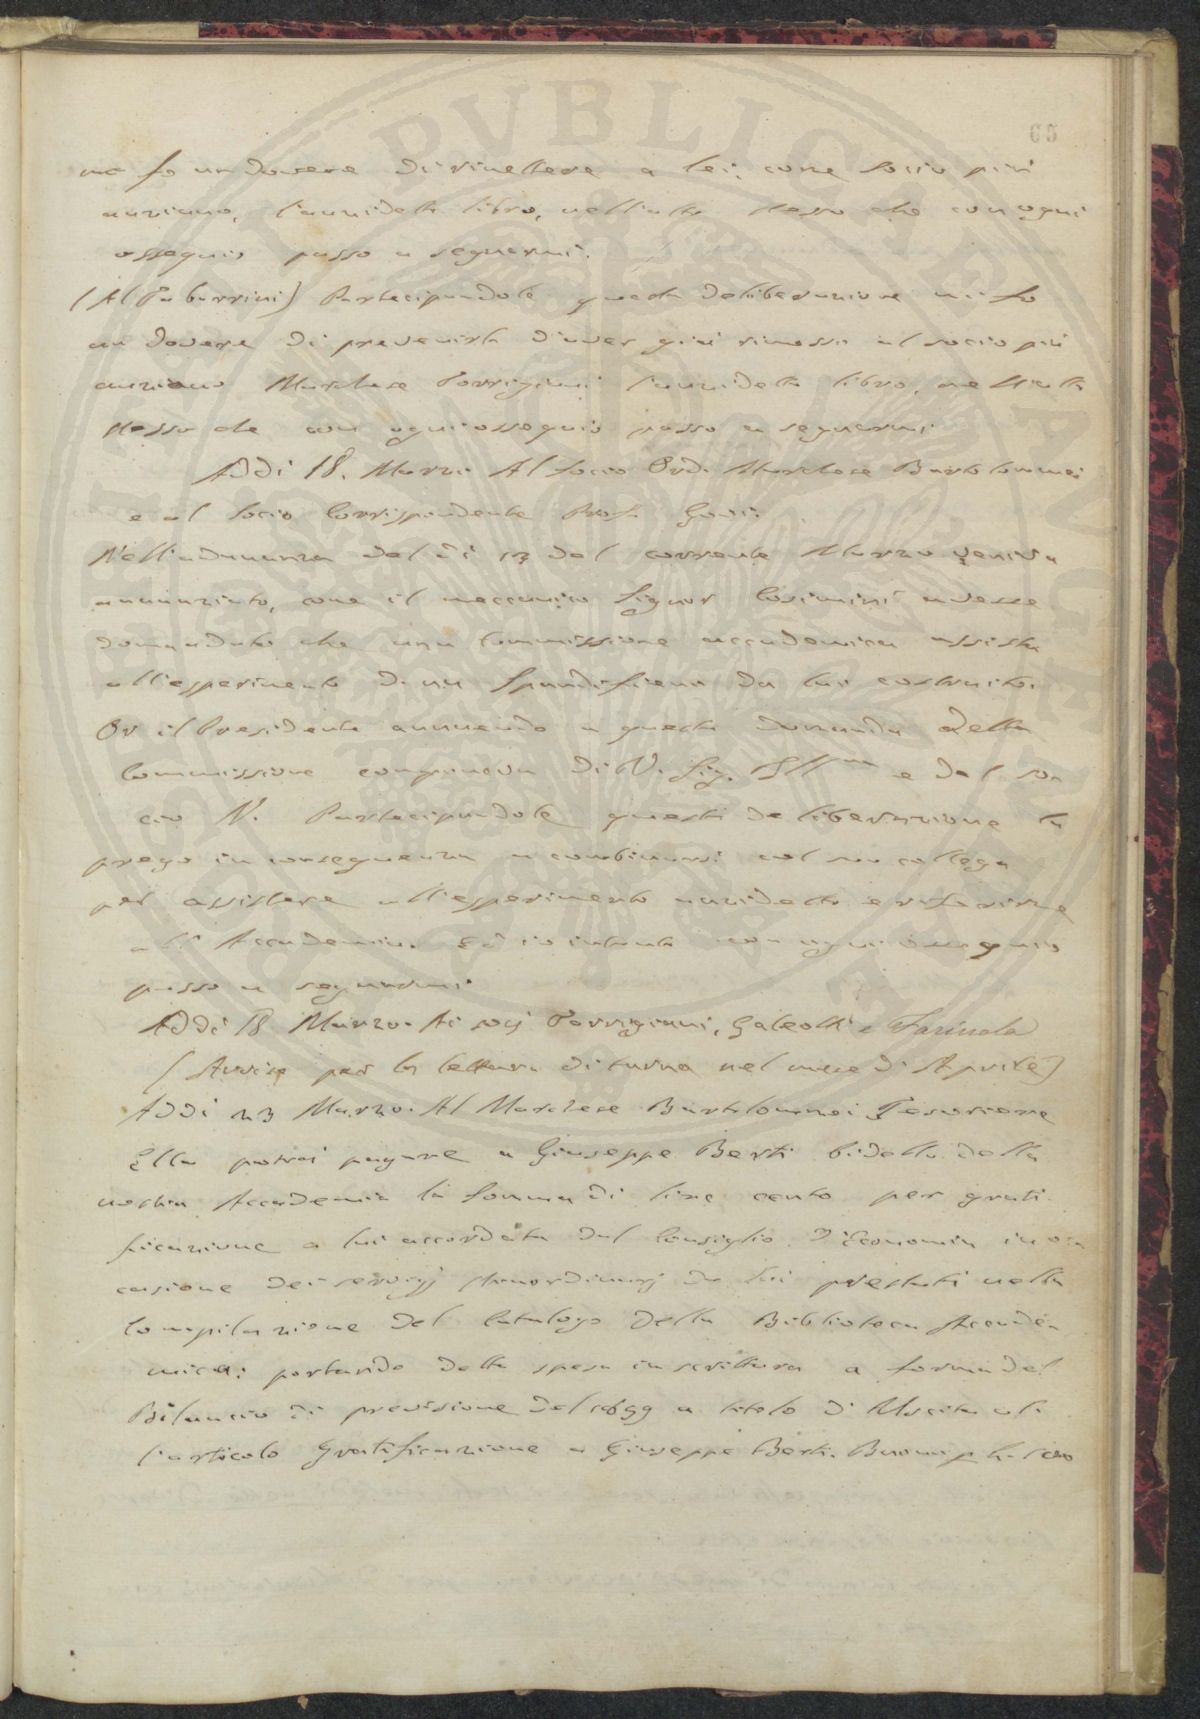 65
me fo un dovere di rimettere a lei, come socio più
anziano, l'anzidetto libro, nell'atto stesso che con ogni
ossequio passo a segnarmi.
(Al Tabarrini) Partecipandole questa deliberazione mi fo
un dovere di prevenirla d'aver già rimesso al socio più
anziano Marchese Torrigiani l'anzidetto libro, nell'atto
stesso che con ogni ossequio passo a segnarmi
Addi 18. Marzo Al Socio Ord. Marchese Bartolommei
e al Socio Corrispondente Prof.
Nell'adunanza del dì 13 del corrente Marzo veniva
annunziato, come il meccanico Signor Cosimini avesse
domandato che una Commissione accademica assista
all'esperimento di un Spandifieno da lui costruito.
Or il Presidente annuendo a questa domanda
Commissione componeva di V. Sig. Illma e del so
cio N. Partecipandole questa deliberazione la
prego in conseguenza a combinarsi col suo collega
per assistere all'esperimento anzidetto e riferirne
all'Accademia. Ed io intanto con ogni ossequio
passo a segnarmi
Addi 18 Marzo. Ai socj Torrigiani, Galeotti e Farinola
(Avviso per la lettura di turno nel mese di Aprile)
Addi 23 Marzo. Al Marchese Bartolommei Tesoriere
Ella potrà pagare a Giuseppe Berti bidello della
nostra Accademia la somma di lire cento per grati
ficazione a lui accordata dal Consiglio d'Economia in oc
casione dei servigj straordinarj da lui prestati nella
Compilazione del Catalogo della Biblioteca Accade
mica: portando detta spesa in scrittura a forma del
Bilancio di previsione del 1859 a titolo d'Uscita al
l'articolo Gratificazione a Giuseppe Berti. Buono p. L. 100